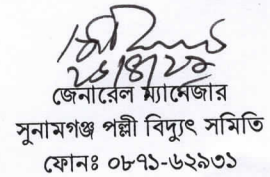 জেনারেল ম্যানেজার
সুনামগঞ্জ পল্লী বিদ্যুৎ সমিতি
ফোনঃ ০৮৭১-৬২৯৩১